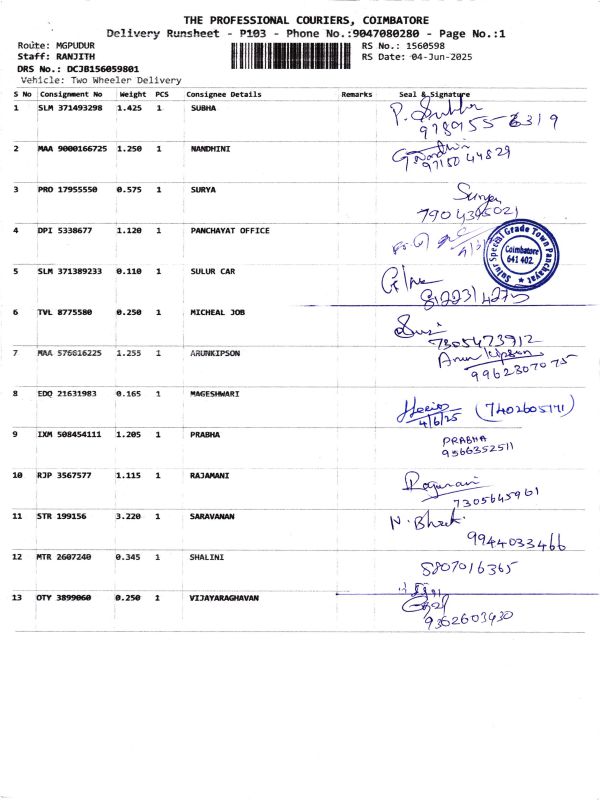 THE PROFESSIONAL COURIERS, COIMBATORE
Delivery Runsheet - P103 - Phone No.:9047080280 - Page No.:1
Route: MGPUDUR RS No.: 1560598
Staff: RANJITH RS Date: 04-Jun-2025
DRS No.: DCJB156059801
Vehicle: Two Wheeler Delivery
S No Consignment No Weight PCS Consignee Details Remarks Seal & Signature
1 SLM 371493298 1.425 1 SUBHA P. Subha
2 MAA 9000166725 1.250 1 NANDHINI
97150 44829
3 PRO 17955550 0.575 1 SURYA Surya
4 DPI 5338677 1.120 1 PANCHAYAT OFFICE
Sulur Special Grade Town Panchayat
Coimbatore
641 402
5 SLM 371389233 0.110 1 SULUR CAR
6 TVL 8775580 0.250 1 MICHEAL JOB Susi
7305473912
7 MAA 576816225 1.255 1 ARUNKIPSON Arun kipson
9962307075
8 EDQ 21631983 0.165 1 MAGESHWARI (7402605171)
4/6/25
9 IXM 508454111 1.205 1 PRABHA PRABHA
9566352511
10 RJP 3567577 1.115 1 RAJAMANI
7305645961
11 STR 199156 3.220 1 SARAVANAN
9944033466
12 MTR 2607240 0.345 1 SHALINI 8807016365
13 OTY 3899060 0.250 1 VIJAYARAGHAVAN
9362603430